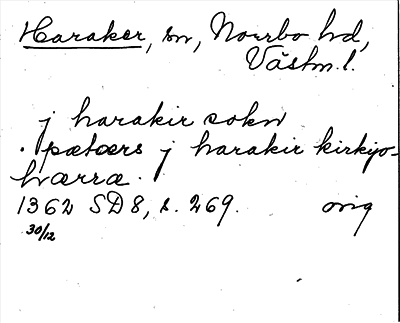 Haraker, sn, Norrbo hd,
Västm. l.
j harakir sokn
. pætærs j harakir kirkyo-
hærra.
1362 SD 8, s. 269. orig
30/12